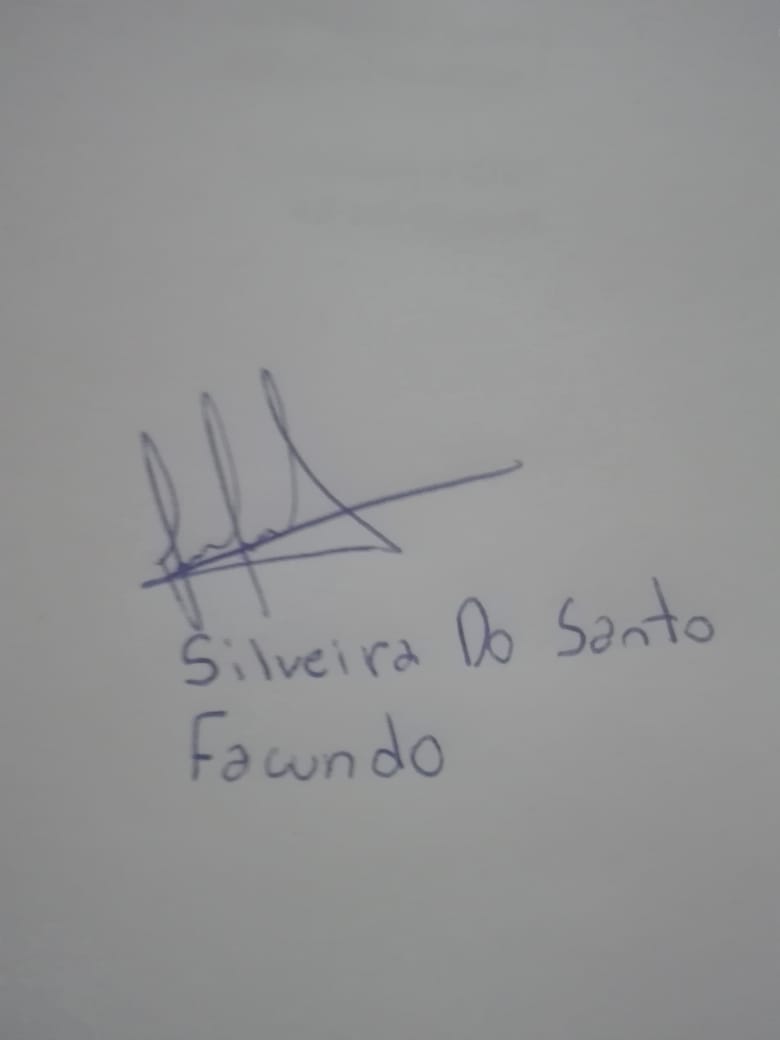 Silveira Do Santo
Facundo